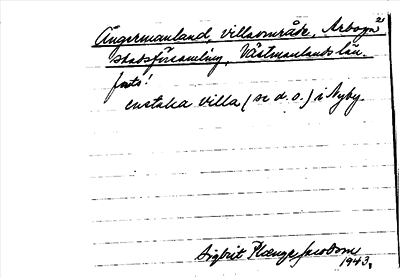 2)
Ångermanland, villaområde, Arboga
stadsförsamling, Västmanlands län.
forts!
enstaka villa (se d.o.) i Nyby
Sigbrit Plænge Jacobson
1943.